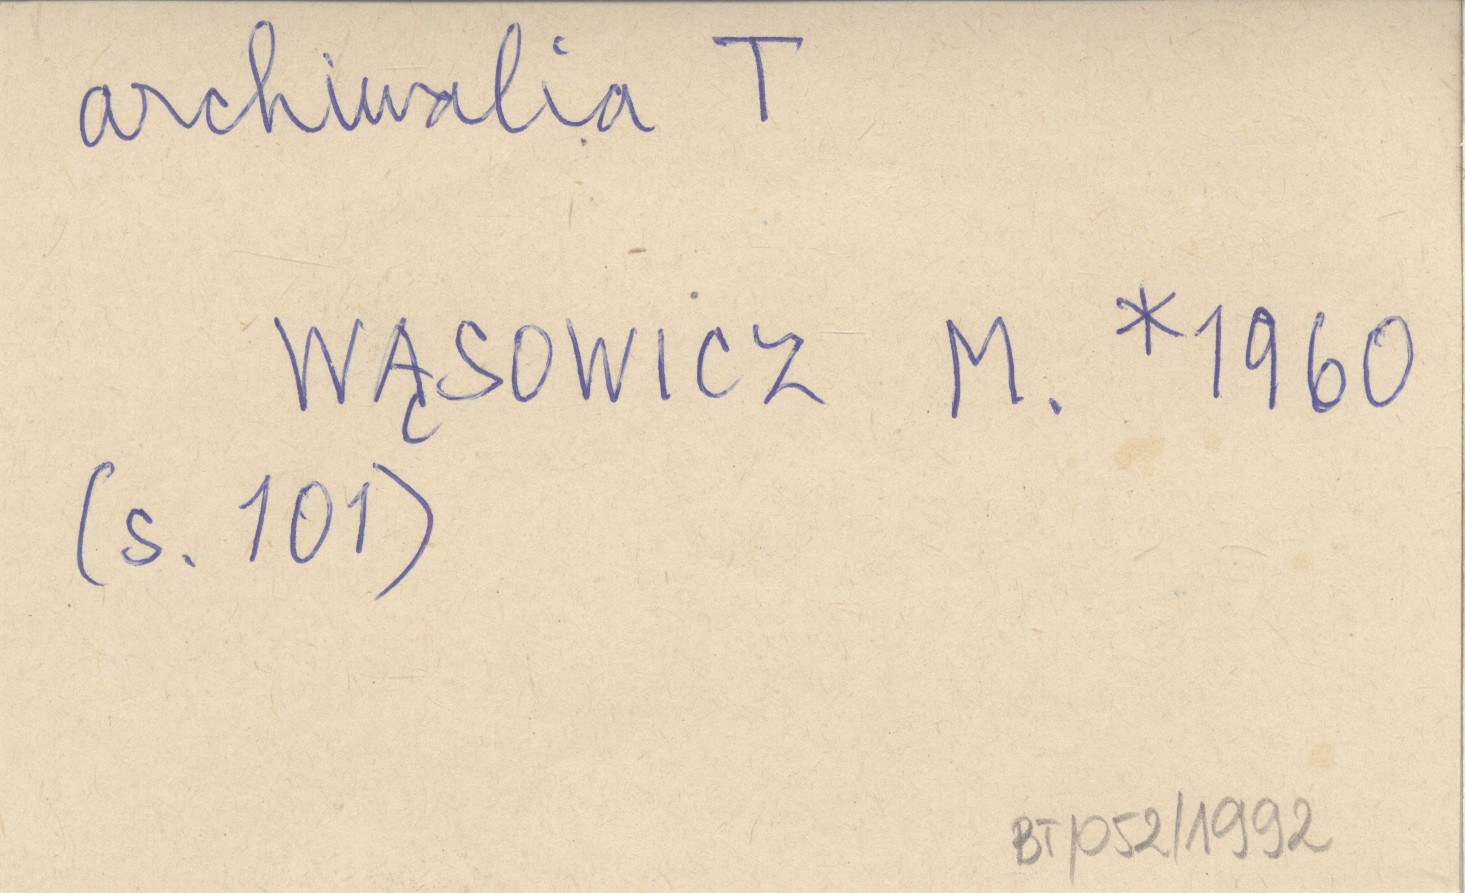 archiwalia T
WĄSOWICZ M. *1960
(s. 101)
BT/052/1992